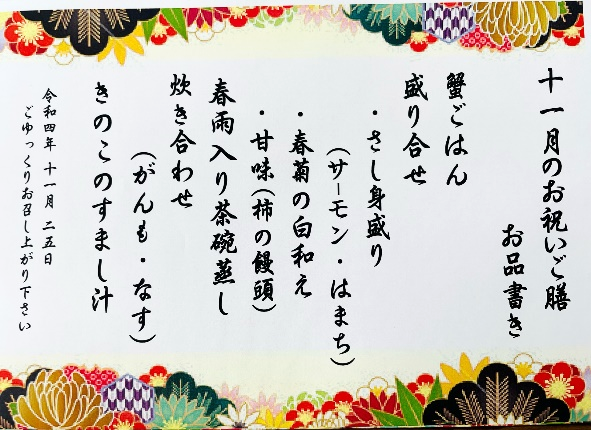 十一月のお祝いご膳
お品書き
蟹ごはん
盛り合せ
・さし身盛り
(サーモン・はまち)
・春菊の白和え
・甘味(柿の饅頭)
春雨入り茶碗蒸し
炊き合わせ
(がんも・なす)
きのこのすまし汁
令和四年 十一月 二五日
ごゆっくりお召し上がり下さい